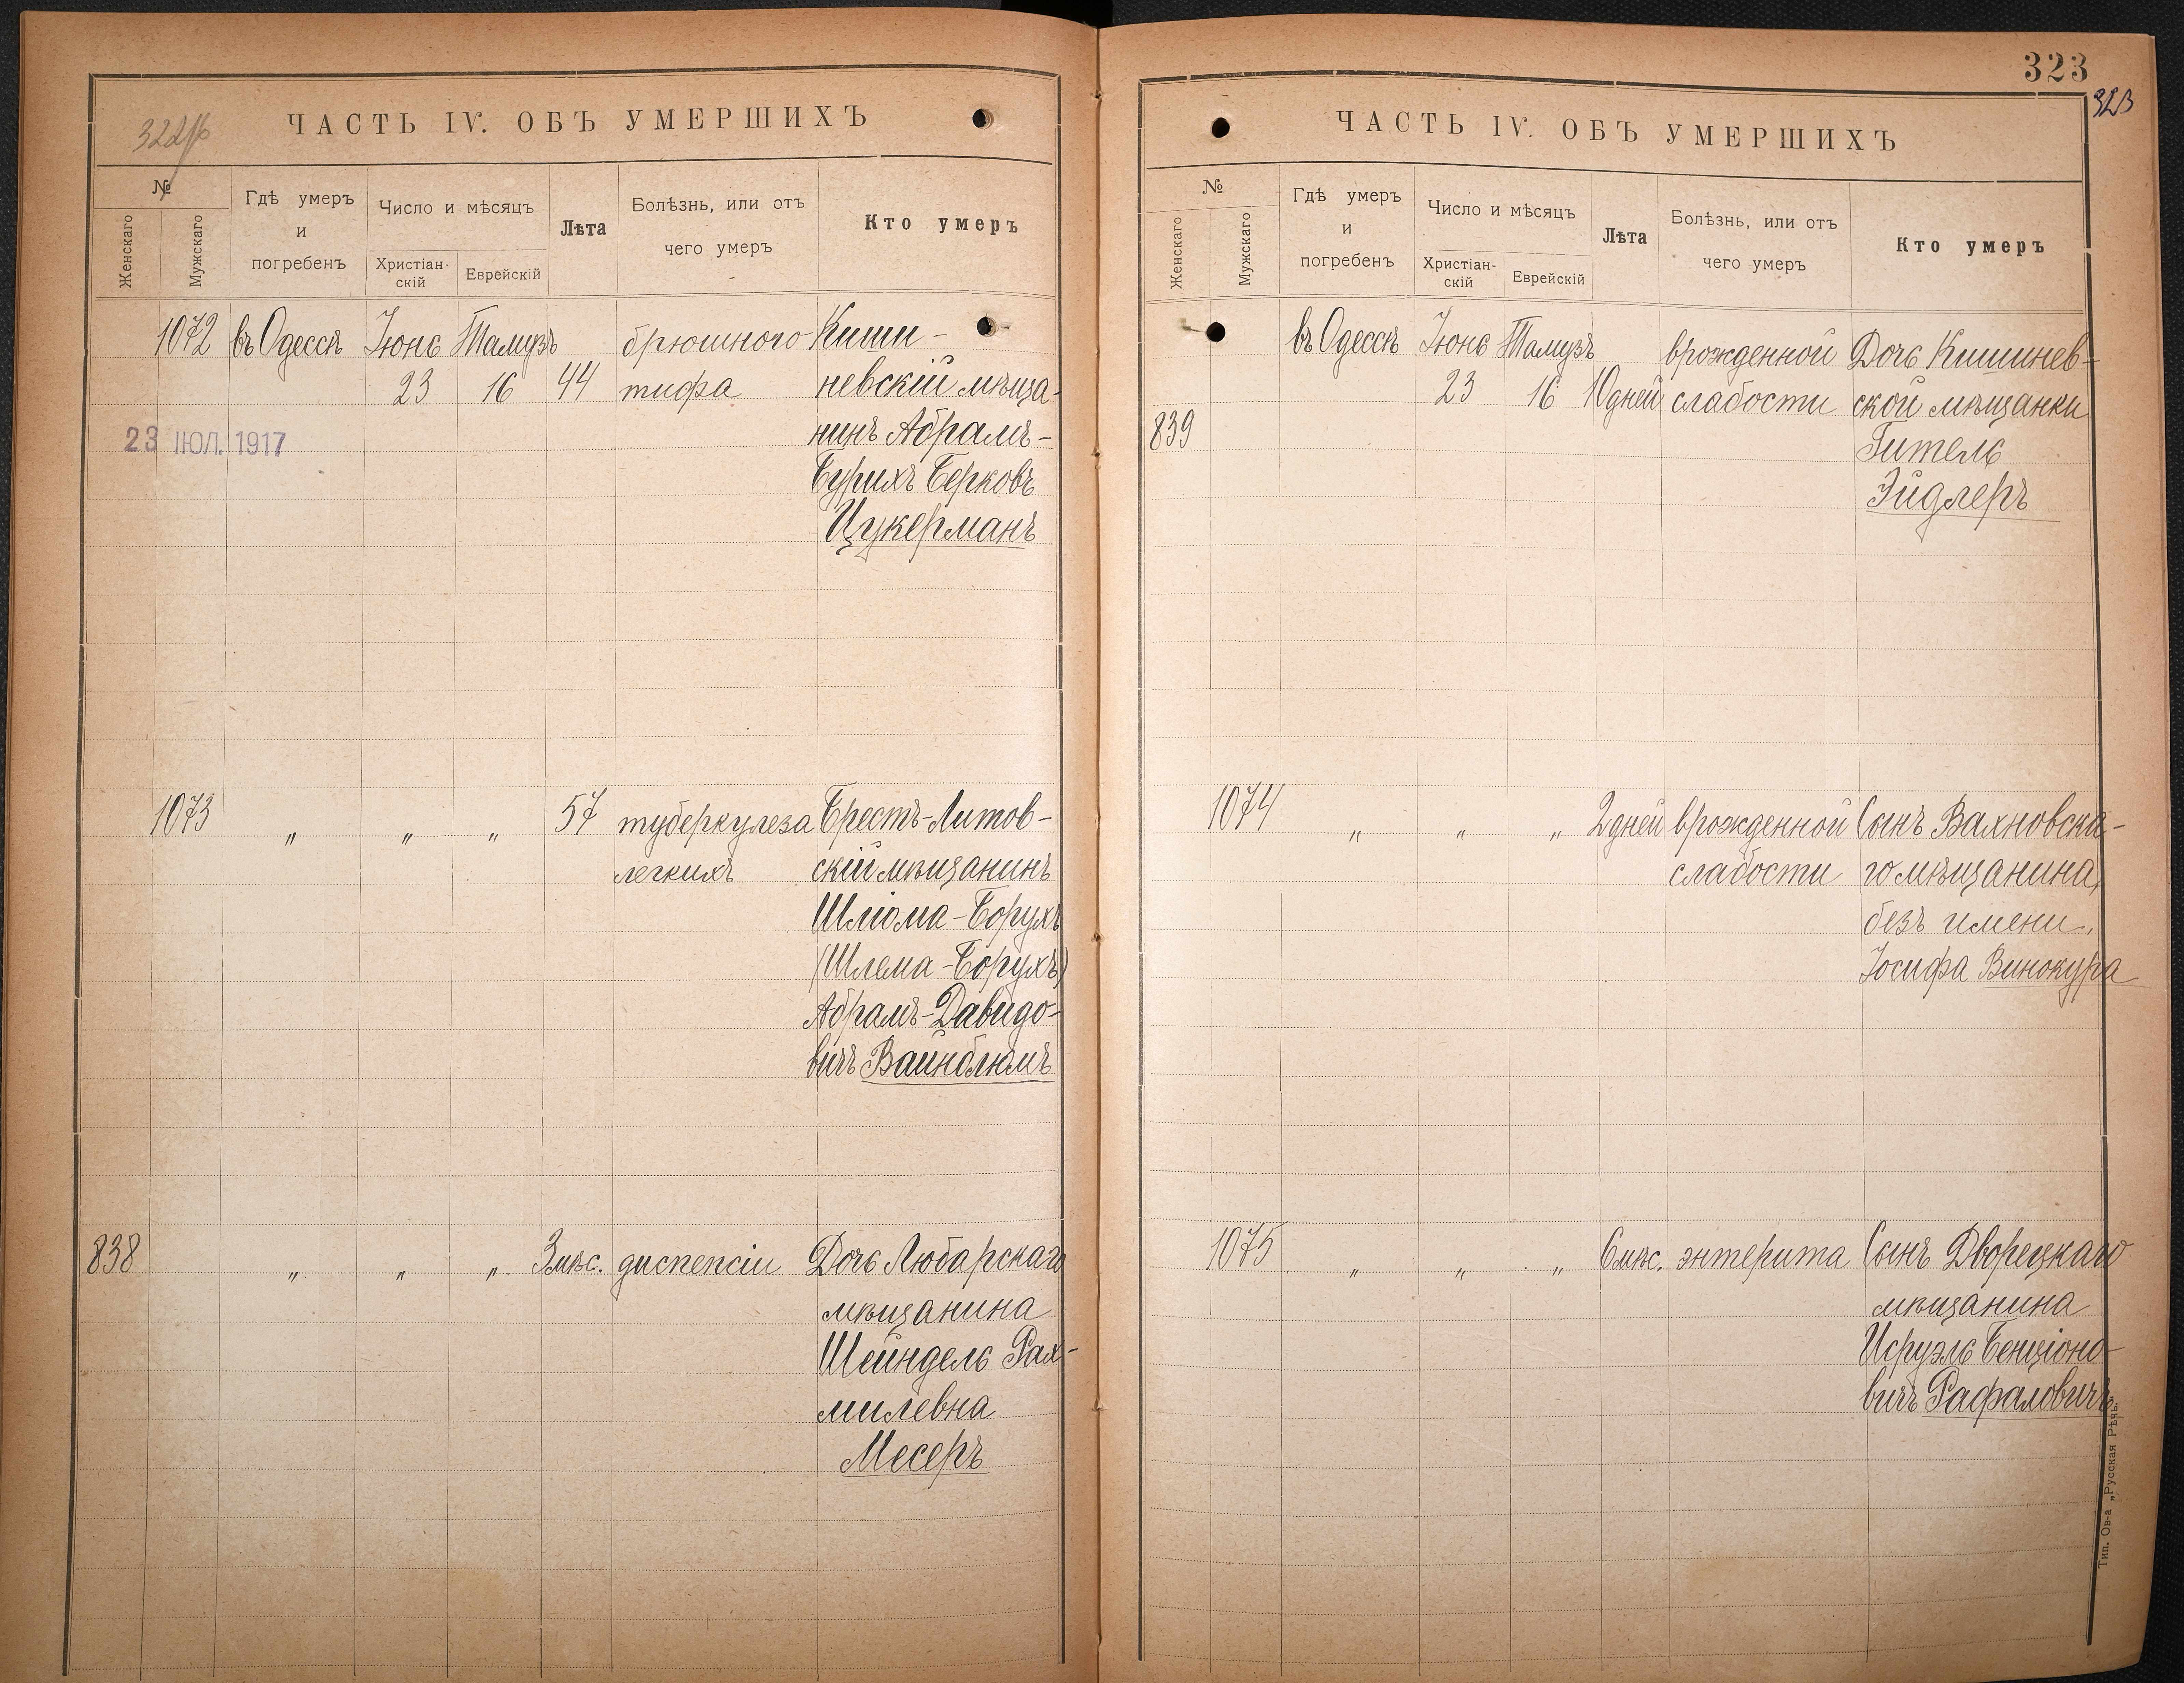 322об
ЧАСТЬ IV. ОБЪ УМЕРШИХЪ
№
Женскаго
Мужскаго
Гдѣ умеръ
и
погребенъ
Число и мѣсяцъ
Христіан-
скій
Еврейскій
Лѣта
Болѣзнь, или отъ
чего умеръ
Кто умеръ
1072 въ Одессѣ Іюнь Тамузъ брюшного Киши-
23 16 44 тифа невскій мѣща-
23 ІЮЛ. 1917 нинъ Абрамъ-
Бурихъ Берковъ
Цукерманъ
1073 „ „ „ 57 туберкулеза Брестъ-Литов-
легкихъ скій мѣщанинъ
Шлiома-Борухъ
(Шлема-Борухъ)
Абрамъ-Давидо-
вичъ Вайнблюмъ
838 „ „ „ 3 мѣс. диспепсіи Дочь Любарскаго
мѣщанина
Шейндель Рах-
милевна
Месеръ
323
323
ЧАСТЬ IV. ОБЪ УМЕРШИХЪ
№
Женскаго
Мужскаго
Гдѣ умеръ
и
погребенъ
Число и мѣсяцъ
Христіан-
скій
Еврейскій
Лѣта
Болѣзнь, или отъ
чего умеръ
Кто умеръ
въ Одессѣ Іюнь Тамузъ врожденной Дочь Кишинев-
23 16 10 дней слабости ской мѣщанки
839 Гитель
Эйдлеръ
1074 „ „ „ 2 дней врожденной Сынъ Вахновска-
слабости го мѣщанина,
безъ имени,
Іосифа Винокура
1075 „ „ „ 6 мѣс. энтерита Сынъ Дворецкаго
мѣщанина
Исруэль Бенціоно-
вичъ Рафаловичъ
Тип. Ов-а „Русская Рѣчь“.